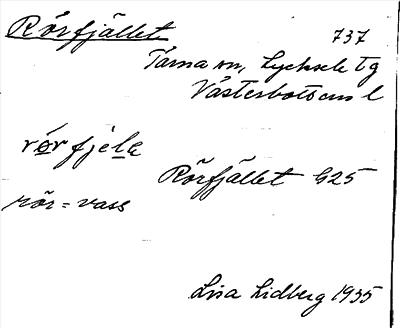 Rörfjället 737
Tärna sn, Lycksele tg
Västerbottens l
rörfjéle
Rörfjället G25
rör = vass
Lisa Lidberg 1935